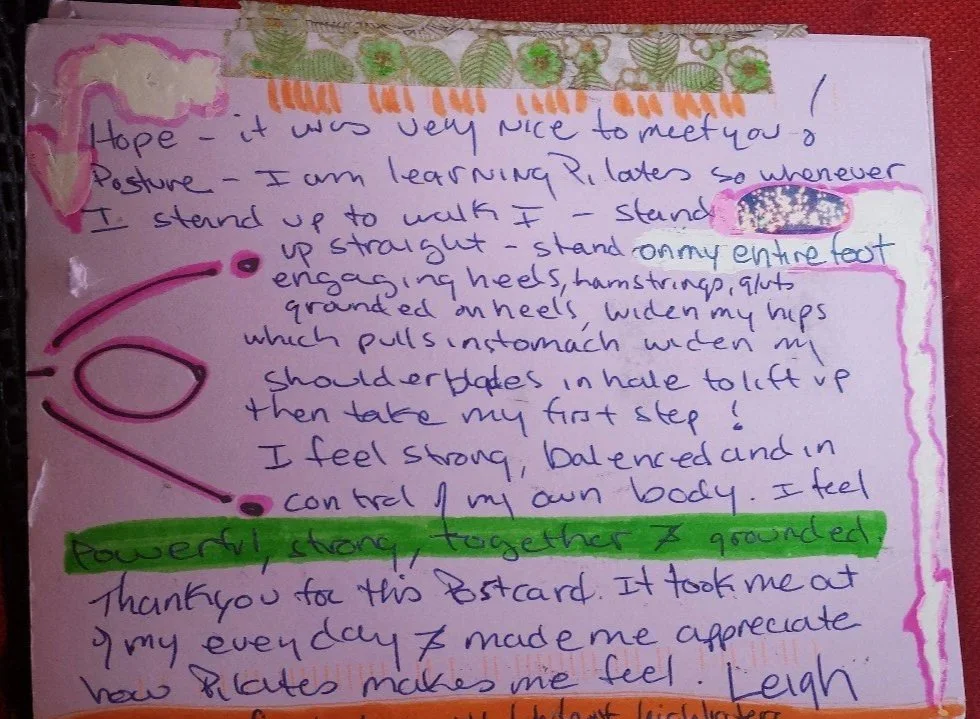 Hope - it was very nice to meet you !
Posture - I am learning Pilates so whenever
I stand up to walk I - stand
up straight - stand on my entire foot
engaging heels, hamstrings, gluts
grounded on heels, widen my hips
which pulls in stomach widen my
shoulderblades inhale to lift up
then take my first step !
I feel strong, balenced and in
control of my own body. I feel
Powerful, strong, together & grounded.
Thankyou for this Postcard. It took me out
of my every day & made me appreciate
how Pilates makes me feel. Leigh